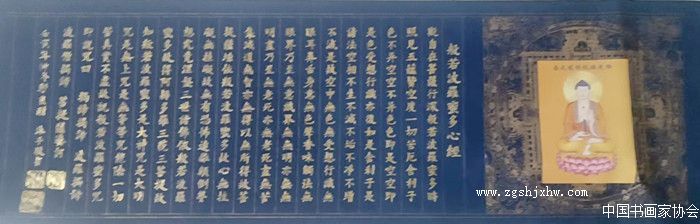 般若波羅蜜多心經
觀自在菩薩行深般若波羅蜜多時
照見五蘊皆空度一切苦厄舍利子
色不異空空不異色色即是空空即
是色受想行識亦復如是舍利子是
諸法空相不生不滅不垢不淨不增
不減是故空中無色無受想行識無
眼耳鼻舌身意無色聲香味觸法無
眼界乃至無意識界無無明亦無無
明盡乃至無老死亦無老死盡無苦
集滅道無智亦無得以無所得故菩
提薩埵依般若波羅蜜多故心無罣
礙無罣礙故無有恐怖遠離顛倒夢
想究竟涅槃三世諸佛依般若波羅
蜜多故得阿耨多羅三藐三菩提故
知般若波羅蜜多是大神咒是大明
咒是無上咒是無等等咒能除一切
苦真實不虛故說般若波羅蜜多咒
即說咒曰 揭諦揭諦 波羅揭諦
波羅僧揭諦 菩提薩婆訶
www.zgshjxhw.com
中国书画家协会